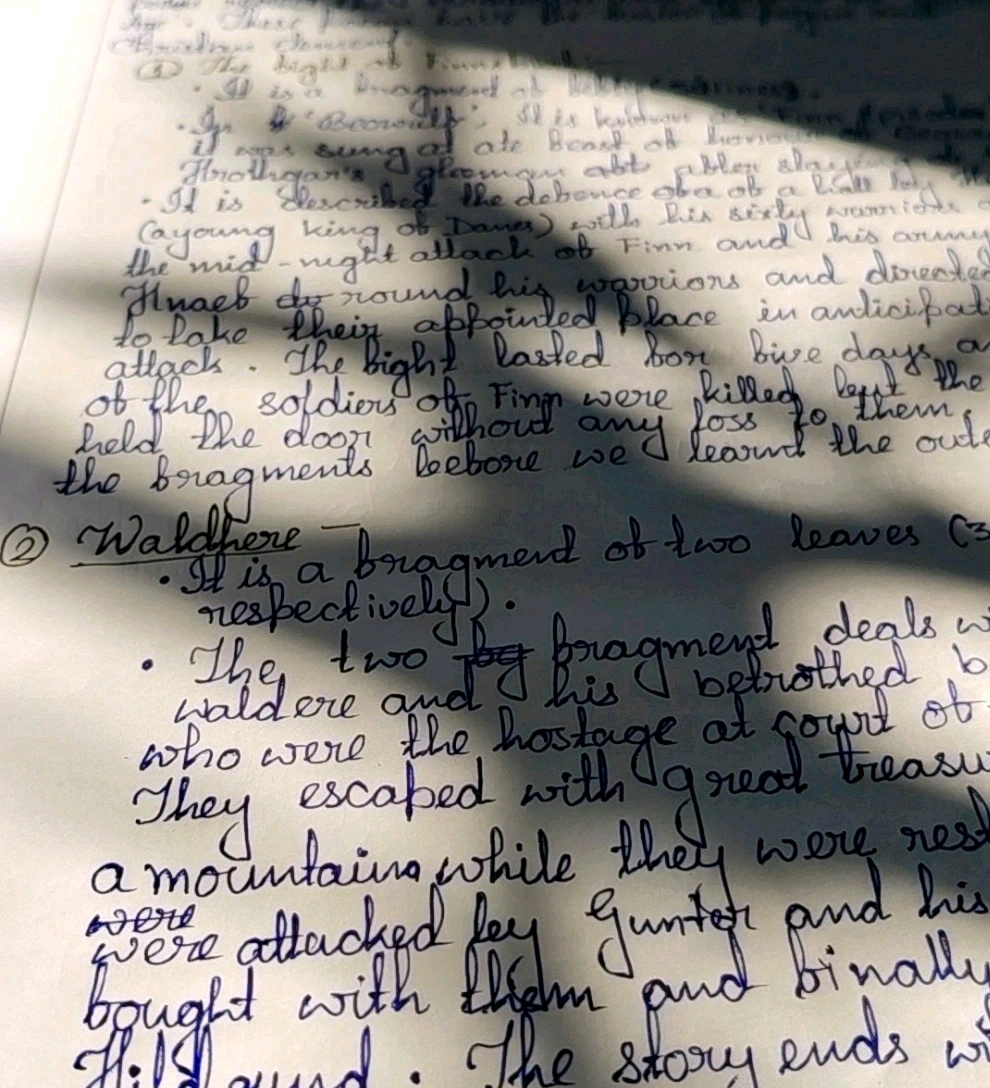 Christian element.
① The fight at Finnsburg.
· It is a fragment of
· In "Beowulf", It is known
it was sung at ate feast of
Hrothgar's gleeman abt after slaying
· It is described the defence of a of a hall by
(a young king of Danes) with his sixty warriors
the mid-night attack of Finn and his army
Hnaef do round his warriors and directed
to take their appointed place in anticipati
attack. The fight lasted for five days, a
of the soldiers of Finn were killed but the
held the door without any loss to them,
the fragments before we learnt the out
② Waldhere –
· It is a fragment of two leaves (3
respectively).
· The two fragment deals wi
waldere and his betrothed
who were the hostage at court of
They escaped with great treasu
a mountains while they were rest
were
were attacked by Gunter and his
fought with them and finally
Hildgund. The story ends wi